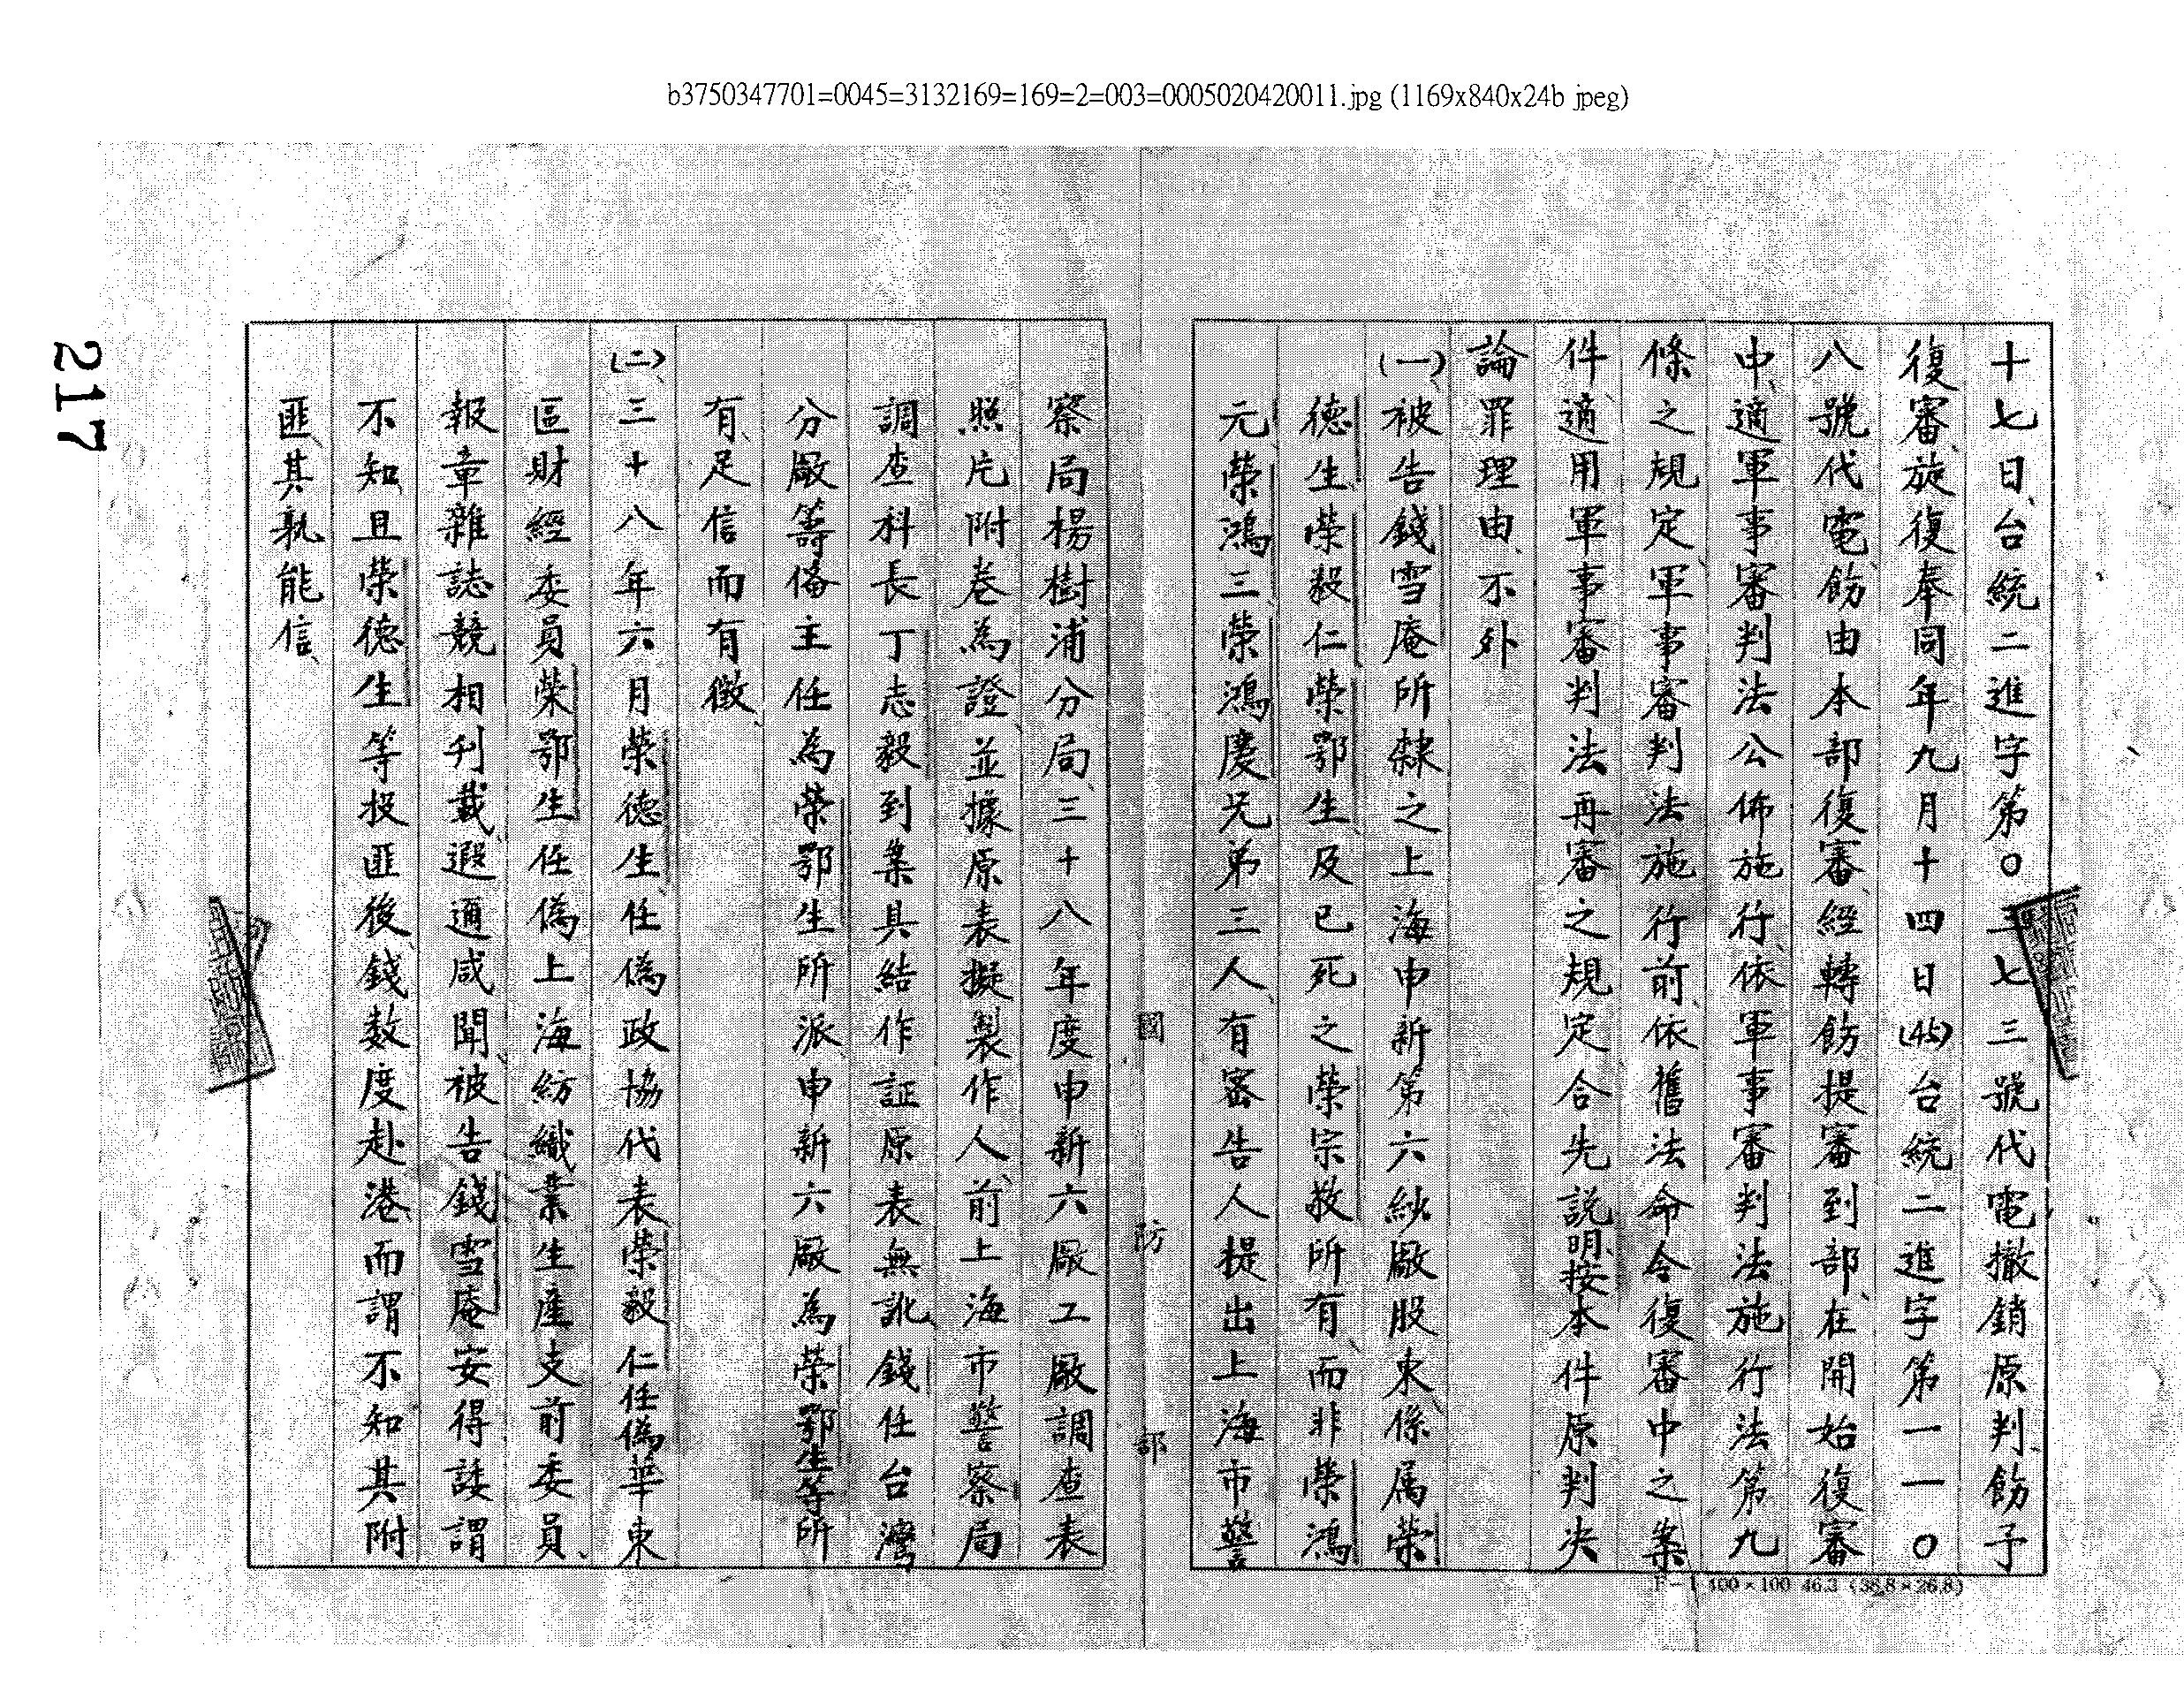 b3750347701=0045=3132169=169=2=003=0005020420011.jpg (1169x840x24b jpeg)
217
十七日、台統二進字第〇三七三號代電撤銷原判、飭予
復審、旋復奉同年九月十四日(45)台統二進字第一一〇
八號代電飭由本部復審、經轉飭提審到部、在開始復審
中、適軍事審判法公佈施行、依軍事審判法施行法第九
條之規定軍事審判法施行前、依舊法命令復審中之案
件適用軍事審判法再審之規定合先説明、按本件原判决
論罪理由、不外
(一)、被告錢雪庵所隸之上海申新第六紗廠股東、係属榮
德生、榮毅仁、榮鄂生及已死之榮宗敬所有、而非榮鴻
元榮鴻三榮鴻慶兄弟三人、有密告人提出上海市警
國防部
察局楊樹浦分局三十八年度申新六廠工廠調查表
照片附卷為證、並據原表擬製作人、前上海市警察局
調查科長丁志毅到案具結作証原表無訛、錢任台灣
分廠籌俻主任為榮鄂生所派申新六廠為榮鄂生等所
有、足信而有徵、
(二)、三十八年六月榮德生任偽政協代表榮毅仁任偽華東
區財經委員榮鄂生任偽上海紡織業生產支前委員、
報章雜誌競相刋載、遐邇咸聞、被告錢雪庵安得諉謂
不知、且榮德生等投匪後、錢数度赴港而謂不知其附
匪、其孰能信、
F-1 400×100 46.3 (38.8×26.8)